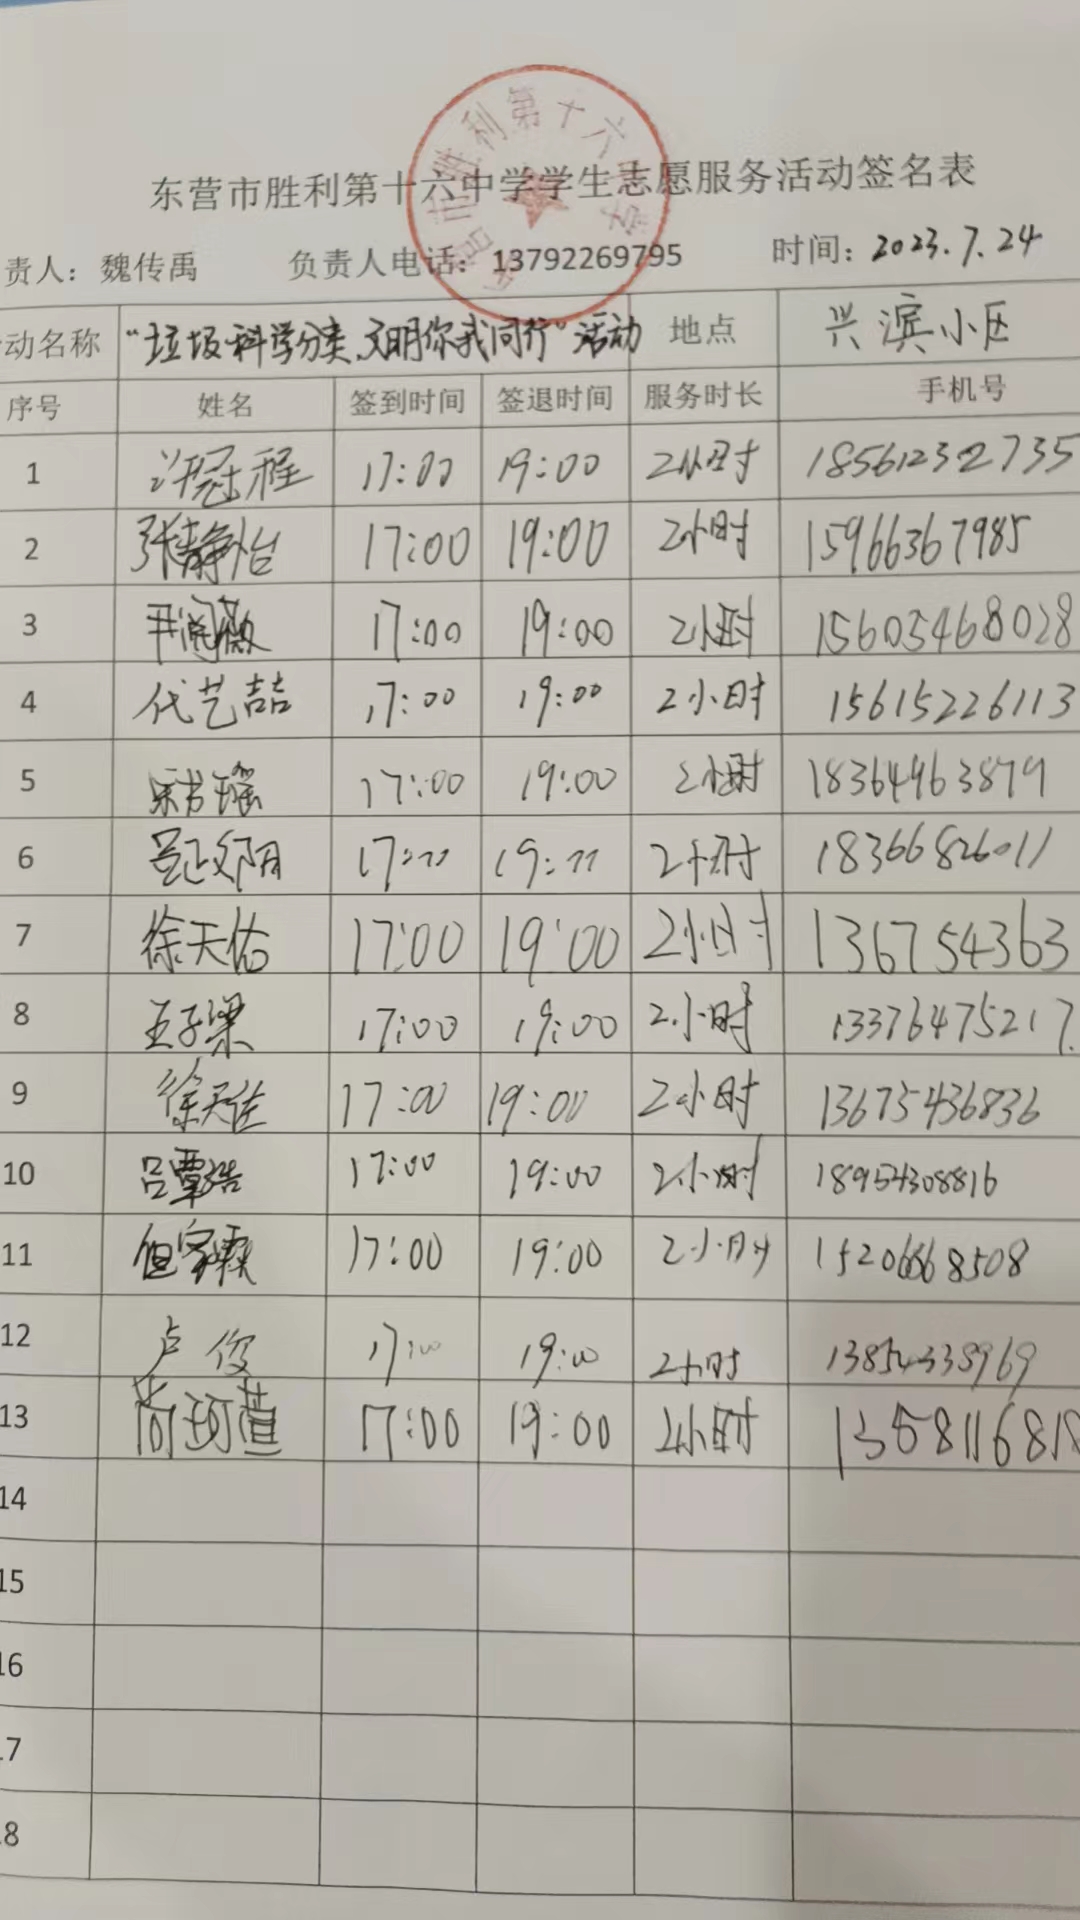 东营市胜利第十六中学学生志愿服务活动签名表
责人：魏传禹 负责人电话：13792269795 时间：2023.7.24
动名称 “垃圾科学分类,文明你我同行”活动 地点 兴滨小区
序号 姓名 签到时间 签退时间 服务时长 手机号
1 许冠程 17:00 19:00 2小时 18561232735
2 张静怡 17:00 19:00 2小时 15966367985
3 17:00 19:00 2小时 15603468028
4 代艺喆 17:00 19:00 2小时 15615226113
5 宋书瑶 17:00 19:00 2小时 18364963879
6 17:00 19:00 2小时 18366826011
7 徐天佑 17:00 19:00 2小时 136754363
8 王子梁 17:00 19:00 2小时 13376475217
9 徐天佐 17:00 19:00 2小时 13675436836
10 吕覃浩 17:00 19:00 2小时 18954308816
11 17:00 19:00 2小时 15206668508
12 卢俊 17:00 19:00 2小时 13854338969
13 尚珂萱 17:00 19:00 2小时
14
15
16
17
18